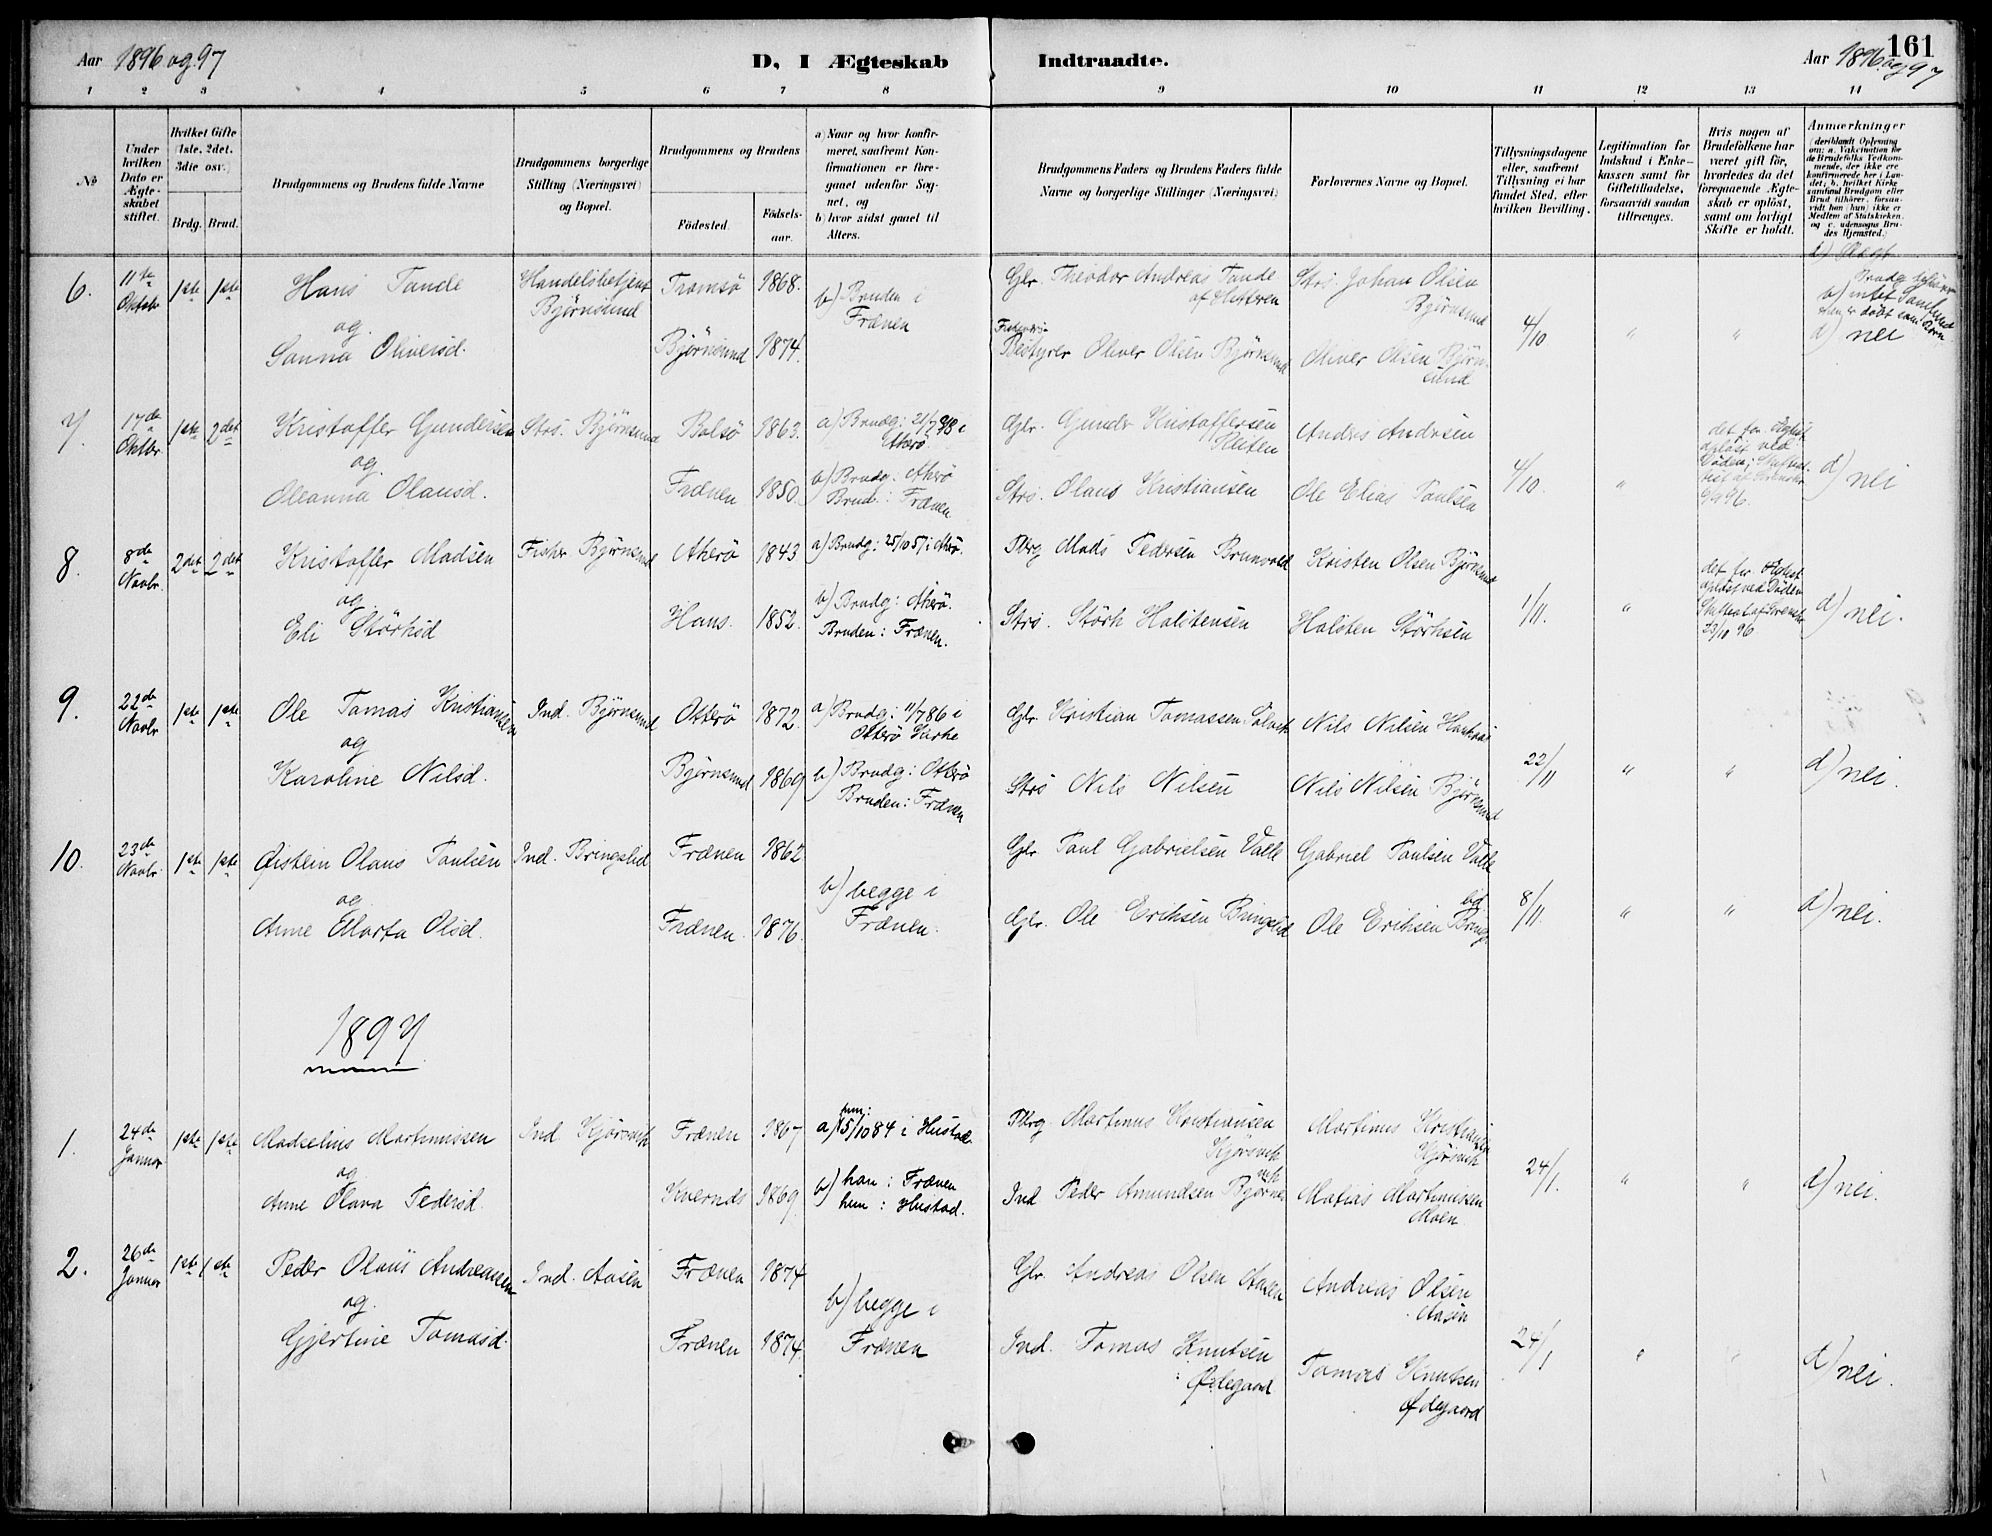 Aar 1896 og 97
D, I Ægteskab Indtraadte.
Aar 1896 og 97
161
1 2 3 4 5 6 7 8 9 10 11 12 13 14
No
Under hvilken Dato er Ægteskabet stiftet.
Hvilket Gifte (1ste, 2det, 3die osv.)
Brdg. Brud.
Brudgommens og Brudens fulde Navne
Brudgommens borgerlige Stilling (Næringsvei) og Bopæl.
Brudgommens og Brudens
Fødested. Fødselsaar.
a) Naar og hvor konfirmeret, saafremt Konfirmationen er foregaaet udenfor Sognet, og
b) hvor sidst gaaet til Alters.
Brudgommens Faders og Brudens Faders fulde Navne og borgerlige Stillinger (Næringsvei).
Forlovernes Navne og Bopæl.
Tillysningsdagene eller, saafremt Tillysning ei har fundet Sted, efter hvilken Bevilling.
Legitimation for Indskud i Enkekassen samt for Giftetilladelse, forsaavidt saadan tiltrænges.
Hvis nogen af Brudefolkene har været gift før, hvorledes da det foregaaende Ægteskab er opløst, samt om lovligt Skifte er holdt.
Anmærkninger (deriblandt Oplysning om: a. Vakcination for de Brudefolks Vedkommende, der ikke ere konfirmerede her i Landet, b. hvilket Kirkesamfund Brudgom eller Brud tilhører, forsaavidt han (hun) ikke er Medlem af Statskirken, og c. udensogns Brudes Hjemsted.)
6. 11te Oktbr 1ste 1ste
Hans Tande
og
Sanna Oliversd.
Handelsbetjent Bjørnsund
Tromsø 1868.
Bjørnsund 1874.
b) Bruden i Frænen
Gbr. Theodor Andreas Tande af Hitteren
Bestyrer Oliver Olsen Bjørnsund
Strs. Johan Olsen Bjørnsund
Oliver Olsen Bjørnsund
4/10 " "
d) nei
7. 17de Oktbr. 1ste 2det
Kristoffer Gundersen
og
Oleanna Olausd.
Strs. Bjørnsund
Bolsø 1863.
Frænen 1850.
a) Brudg: 21/7 78 i Akerø
b) Brudg: Akerø
Brud: Frænen
Gbr. Gunder Kristoffersen
Strs. Olaus Kristiansen
Anders Andersen
Ole Elias Paulsen
4/10. "
det før. Ægtesk. opløst ved Døden;
d) nei
8. 8de Novbr. 2det 2det
Kristoffer Madsen
og
Eli Størksd
Fisker Bjørnsund
Akerø 1843
Haus. 1852.
a) Brudg: 25/10 57 i Akerø.
b) Brudg: Akerø.
Bruden: Frænen.
Pbrg Mads Pedersen Brunvold
Strs. Størk Halstensen
Kristen Olsen Bjørnsund
Halsten Størksen
1/11. "
det før. Ægtesk. opløst ved Døden
23/10 96
d) nei.
9. 22de Novbr 1ste 1ste
Ole Tomas Kristiansen
og
Karoline Nilsd.
Ind. Bjørnsund
Otterø 1872.
Bjørnsund 1869
a) Brudg: 11/7 86 i Otterø Kirke
b) Brudg: Otterø
Bruden: Frænen
Gbr. Kristian Tomassen
Strs Nils Nilsen
Nils Nilsen
Nils Nilsen Bjørnsund
22/11 " "
d) nei.
10. 23de Novbr. 1ste 1ste
Østein Olaus Paulsen
og
Anne Marta Olsd.
Ind. Bringslid
Frænen 1862
Frænen. 1876.
b) begge i Frænen.
Gbr. Paul Gabrielsen Valle
Gbr. Ole Eriksen Bringslid
Gabriel Paulsen Valle
Ole Eriksen Bringslid
8/11. " "
d) nei.
1897
1. 24de Januar 1ste 1ste
Madselius Martinussen
og
Anne Olava Pedersd.
Ind Kjørsvik
Frænen 1867
Kvernæs 1869.
a) hun: 5/10 84 i Hustad
b) han: Frænen
hun: Hustad.
Pbrg. Martinus Kristiansen Kjørsvik
Ind Peder Amundsen Bjørnevik
Martinus Kristiansen Kjørsvik
Matias Martinussen Moen
24/1. " "
d) nei.
2. 26de Januar 1ste 1ste
Peder Olaus Andreassen
og
Gjertine Tomasd.
Ind. Aasen
Frænen 1874
Frænen 1874.
b) begge i Frænen
Gbr. Andreas Olsen Aasen
Ind. Tomas Knutsen Ødegaard
Andreas Olsen Aasen
Tomas Knutsen Ødegaard
24/1 " "
d) nei.